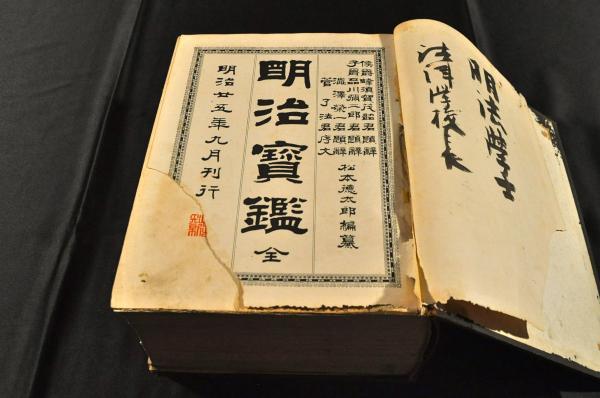 明法學士
法律学校長
侯爵蜂須賀茂韶君題辭
子爵品川彌二郎君題辭
澁澤榮一君題辭
菅了法君序文
松本徳太郎編纂
明治寶鑑 全
明治廿五年九月刊行